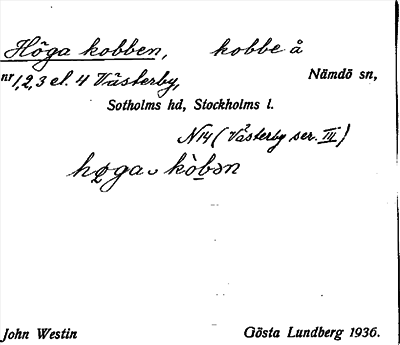 Höga kobben, kobbe å
nr 1,2,3 el. 4 Västerby, Nämdö sn,
Sotholms hd, Stockholms l.
N14 (Västerby ser. III)
hø̱gaᴗ kòḇən
John Westin Gösta Lundberg 1936.